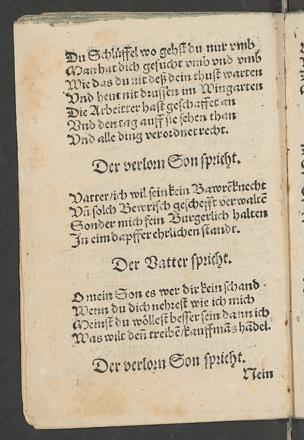 Du Schlüffel wo gehst du nur vmb
Man hat dich gesucht vmb vnd vmb
Wie das du nit deß dein thust warten
Vnd heut nit draussen im Wingarten
Die Arbeitter hast geschaffet an
Vnd den tag auff sie sehen than
Vnd alle ding verordnet recht.
Der verlorn Son spricht.
Vatter/ich wil sein kein Bawrẽknecht
Vñ solch Bewrisch geschefft verwaltẽ
Sonder mich fein Burgerlich halten
In eim dapffer ehrlichen standt.
Der Vatter spricht.
O mein Son es wer dir kein schand
Wenn du dich nehrest wie ich mich
Meinst du wöllest besser sein dann ich
Was wilt deñ treibẽ/kauffmãs hãdel.
Der verlorn Son spricht.
Nein